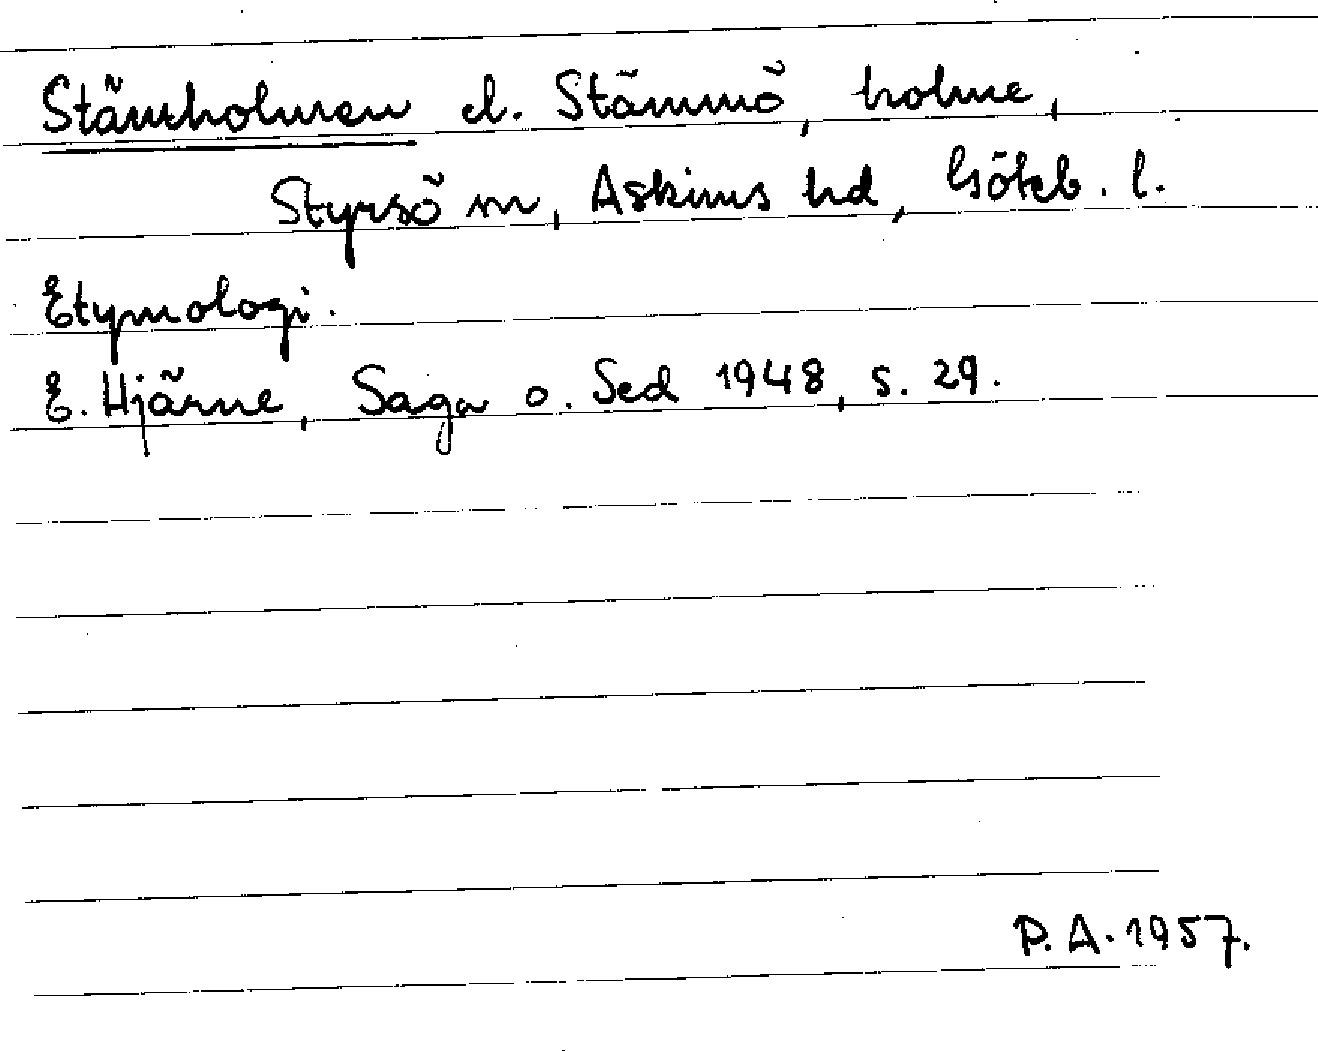 Stämholmen el. Stämmö, holme,
Styrsö sn, Askims hd, Göteb. l.
Etymologi.
E. Hjärne, Saga o. Sed 1948, s. 29.
P. A. 1957.